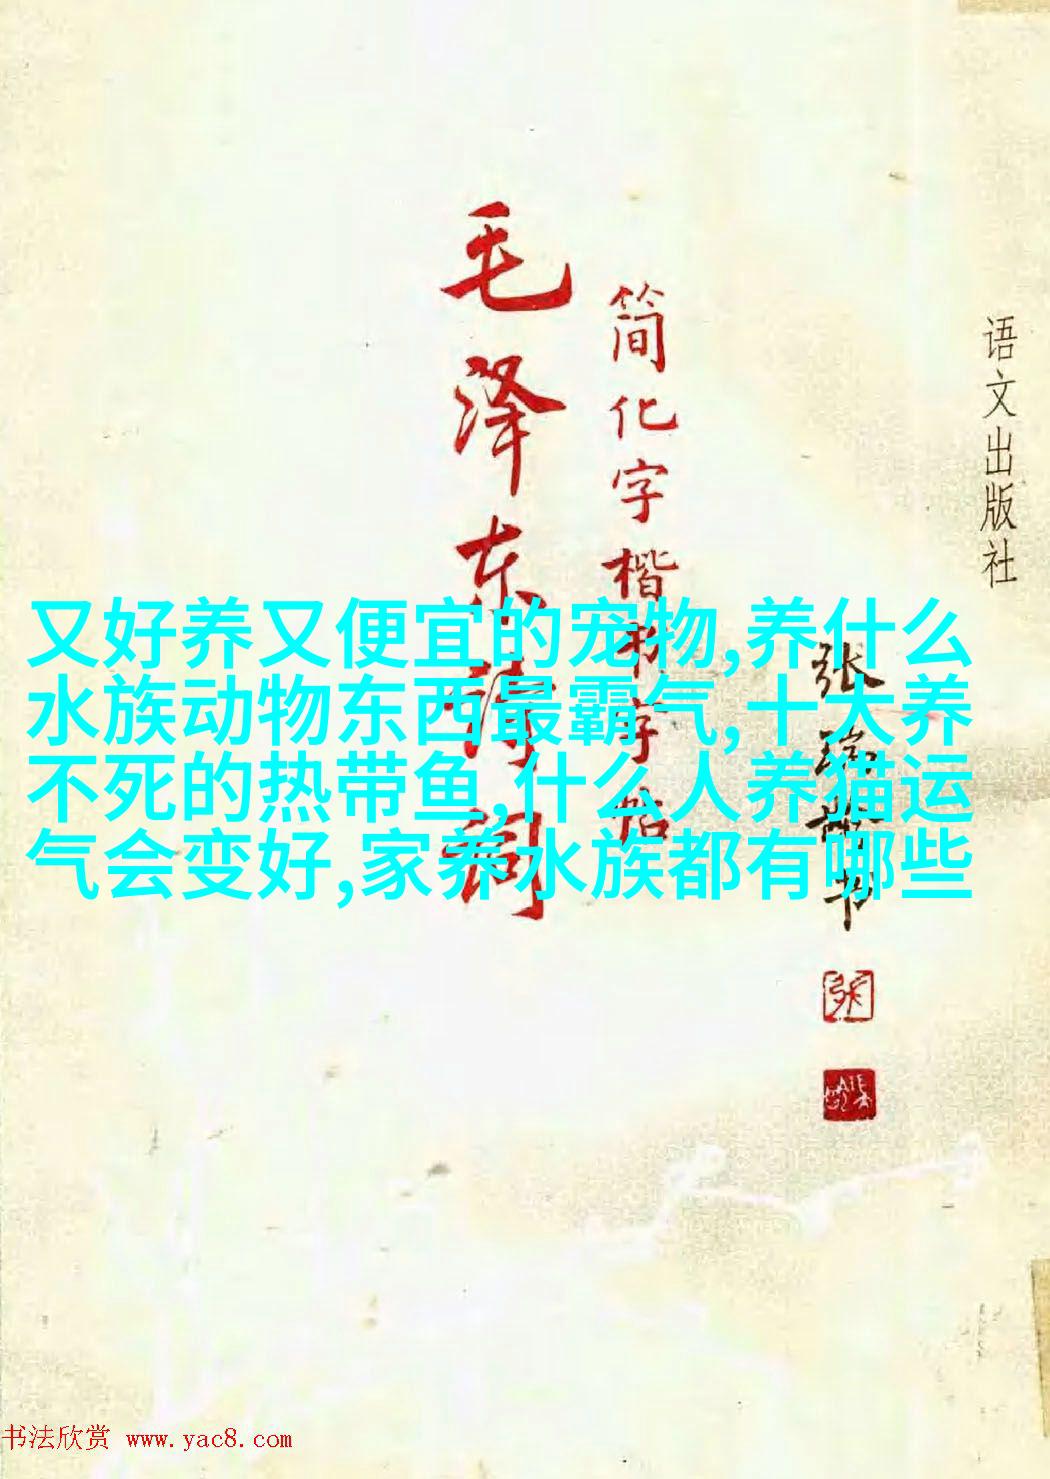 语文出版社
简化字楷书字帖
毛泽东诗词
张瑞龄书
又好养又便宜的宠物,养什么
水族动物东西最霸气,十大养
不死的热带鱼,什么人养猫运
气会变好,家养水族都有哪些
书法欣赏 www.yac8.com